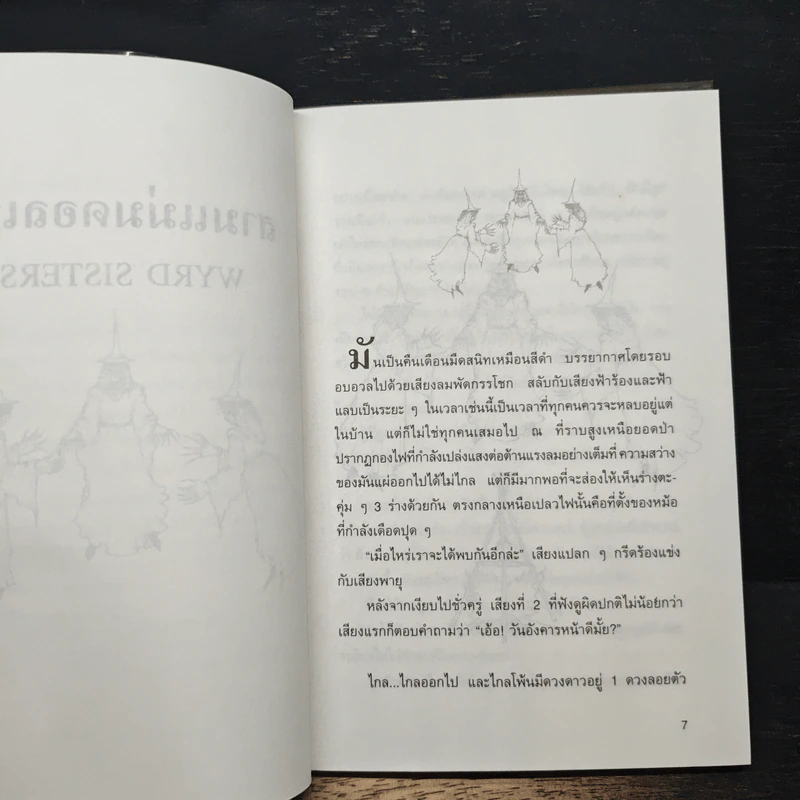 WYRD SISTERS
มันเป็นคืนเดือนมืดสนิทเหมือนสีดำ บรรยากาศโดยรอบ
อบอวลไปด้วยเสียงลมพัดกรรโชก สลับกับเสียงฟ้าร้องและฟ้า
แลบเป็นระยะ ๆ ในเวลาเช่นนี้เป็นเวลาที่ทุกคนควรจะหลบอยู่แต่
ในบ้าน แต่ก็ไม่ใช่ทุกคนเสมอไป ณ ที่ราบสูงเหนือยอดป่า
ปรากฏกองไฟที่กำลังเปล่งแสงต่อต้านแรงลมอย่างเต็มที่ ความสว่าง
ของมันแผ่ออกไปได้ไม่ไกล แต่ก็มีมากพอที่จะส่องให้เห็นร่างตะ-
คุ่ม ๆ 3 ร่างด้วยกัน ตรงกลางเหนือเปลวไฟนั้นคือที่ตั้งของหม้อ
ที่กำลังเดือดปุด ๆ
“เมื่อไหร่เราจะได้พบกันอีกล่ะ” เสียงแปลก ๆ กรีดร้องแข่ง
กับเสียงพายุ
หลังจากเงียบไปชั่วครู่ เสียงที่ 2 ที่ฟังดูผิดปกติไม่น้อยกว่า
เสียงแรกก็ตอบคำถามว่า “เอ้อ! วันอังคารหน้าดีมั้ย?”
ไกล...ไกลออกไป และไกลโพ้นมีดวงดาวอยู่ 1 ดวงลอยตัว
7